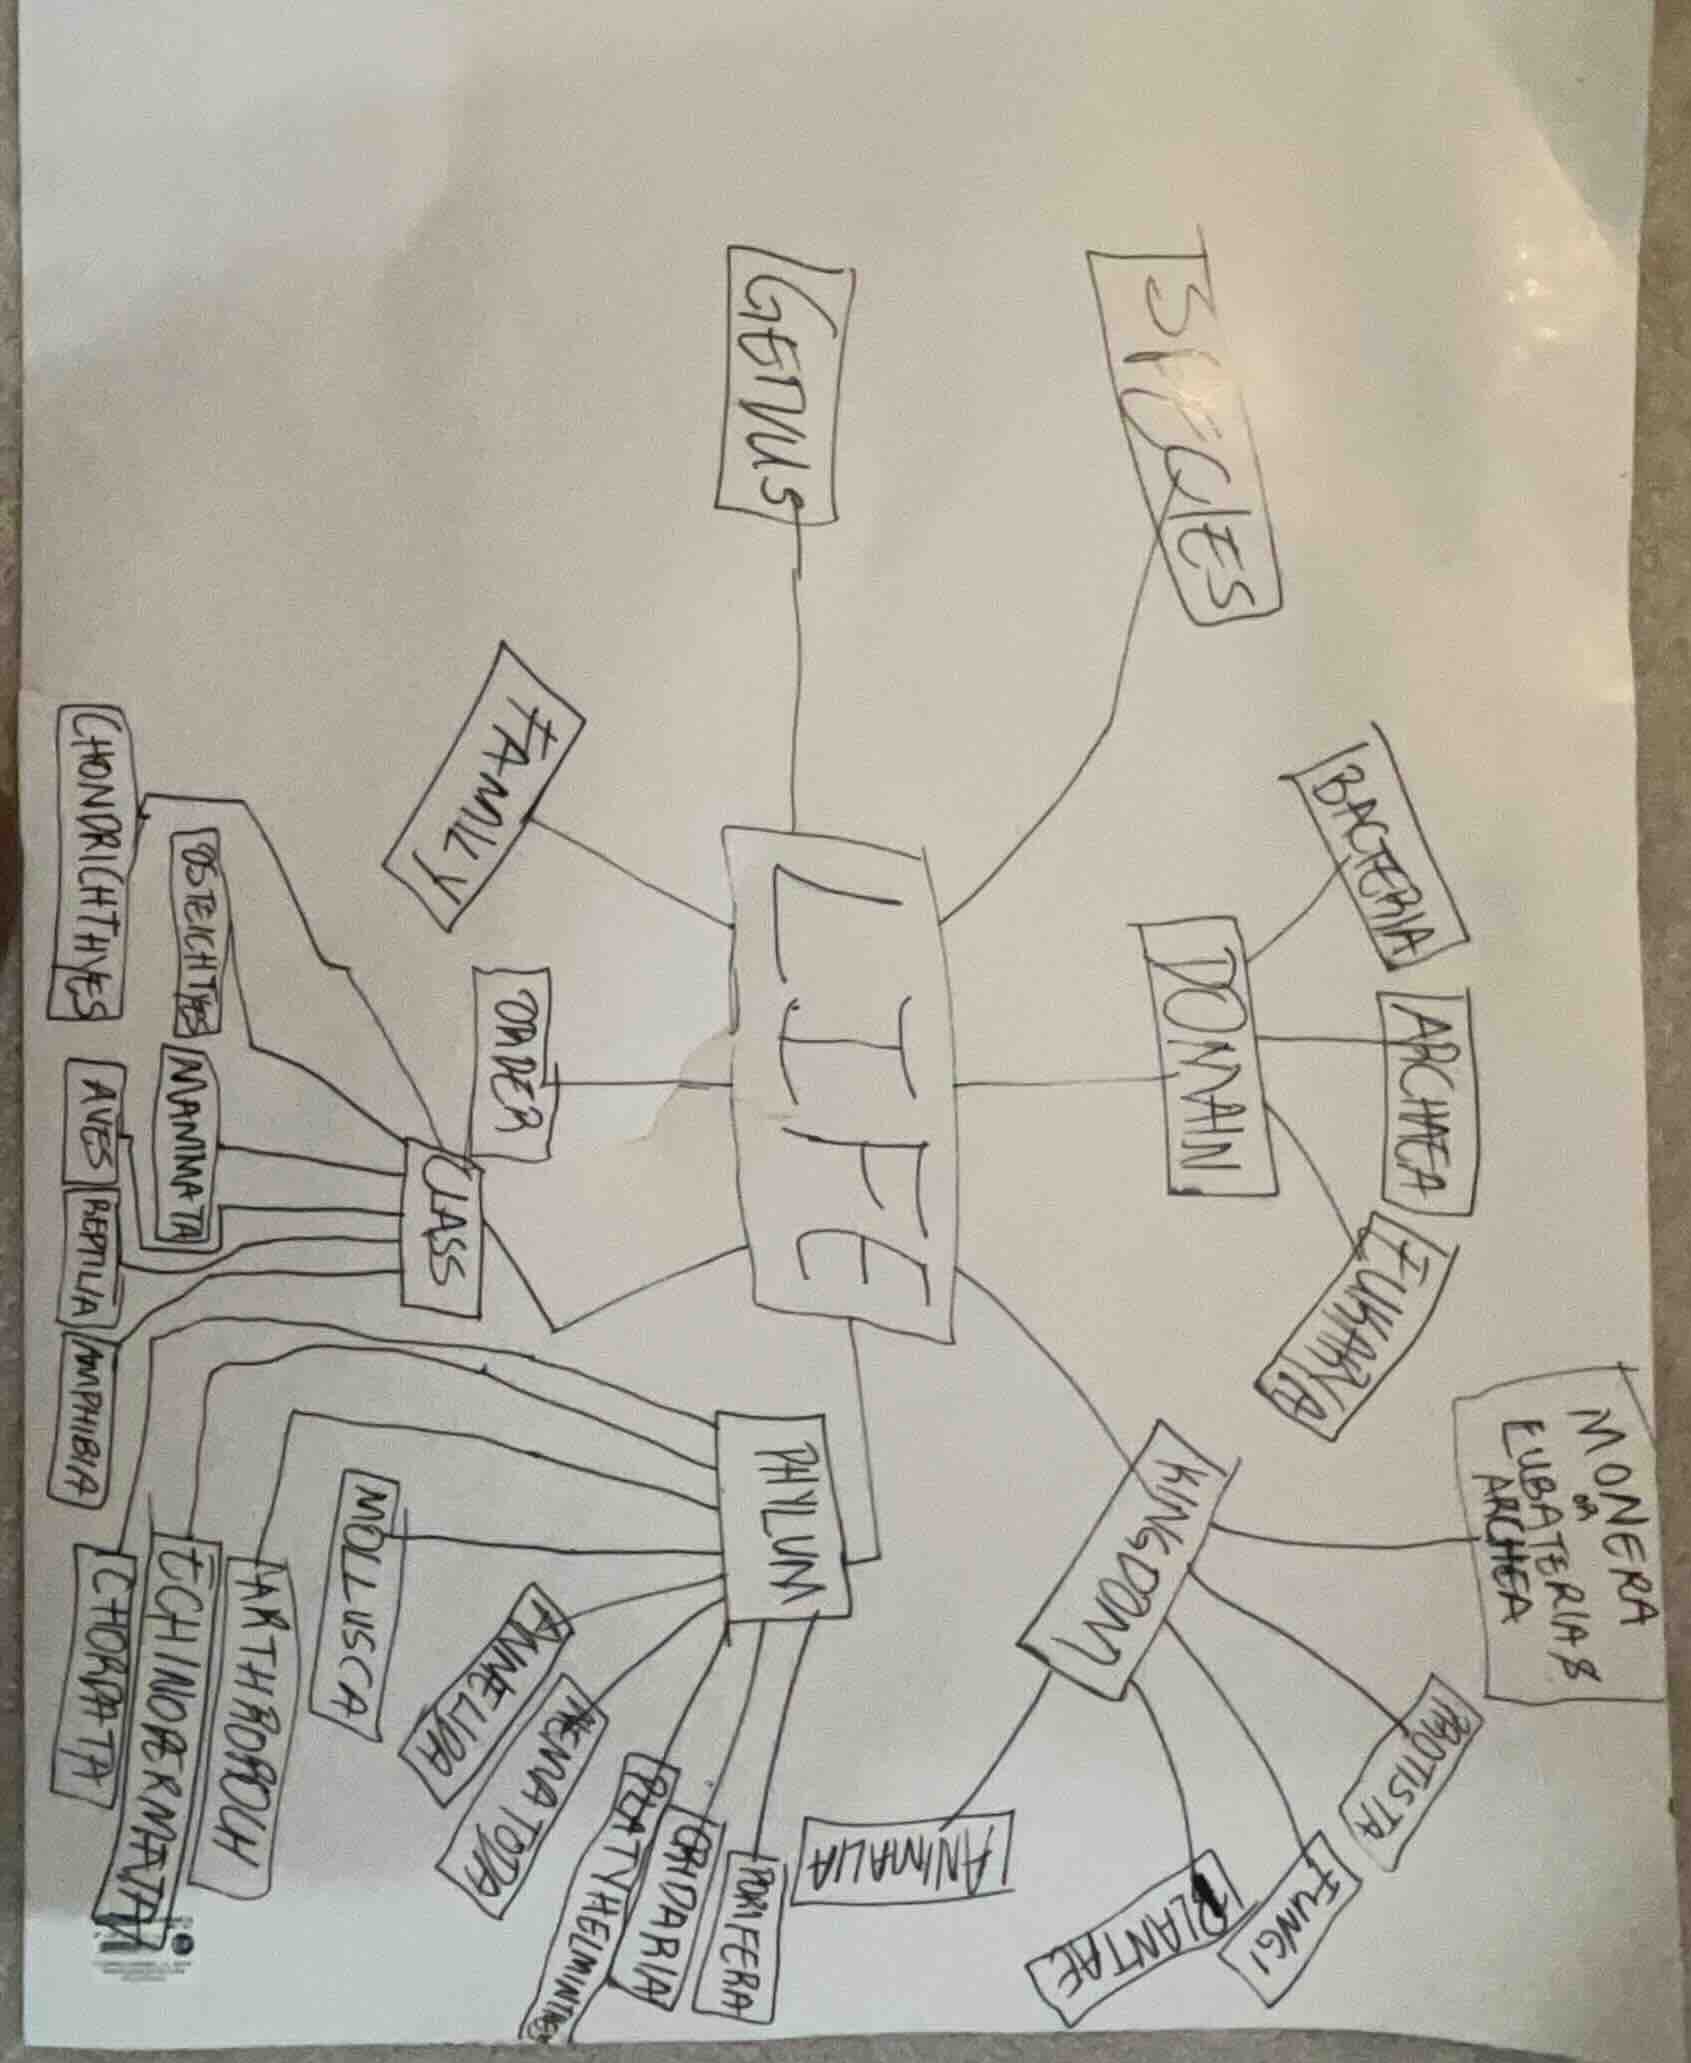 LIFE
SPECIES
DOMAIN
BACTERIA
ARCHAEA
EUKARYA
KINGDOM
MONERA
OR
EUBATERIA &
ARCHEA
PROTISTA
FUNGI
PLANTAE
ANIMALIA
PHYLUM
PORIFERA
CNIDARIA
PLATYHELMINTHES
NEMATODA
ANNELIDA
MOLLUSCA
ECHINODERMATA
CHORDATA
CLASS
AMPHIBIA
REPTILIA
AVES
MAMMATA
OSTEICHTYES
CHONDRICHTHYES
ORDER
FAMILY
GENUS